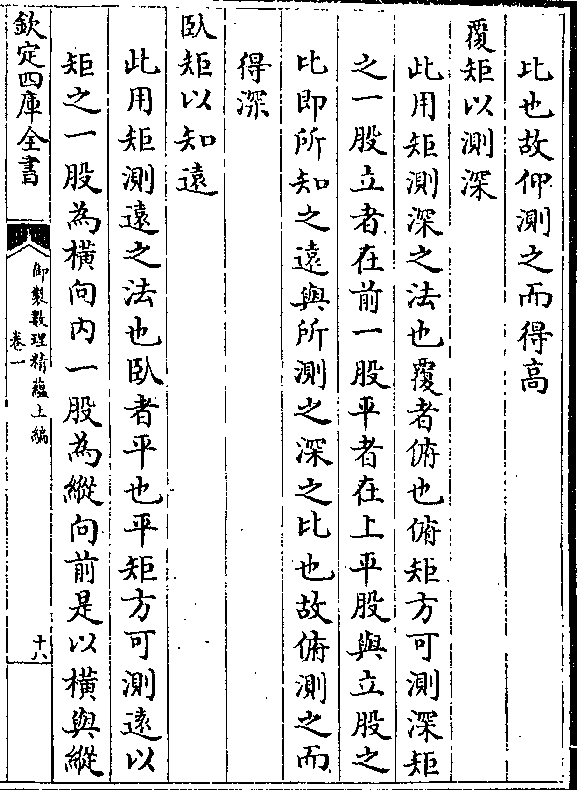 比也故仰測之而得高
覆矩以測深
此用矩測深之法也覆者俯也俯矩方可測深矩
之一股立者在前一股平者在上平股與立股之
比即所知之遠與所測之深之比也故俯測之而
得深
臥矩以知遠
此用矩測遠之法也臥者平也平矩方可測遠以
矩之一股為橫向内一股為縱向前是以橫與縱
欽定四庫全書
御製數理精蘊上編
卷一
十八